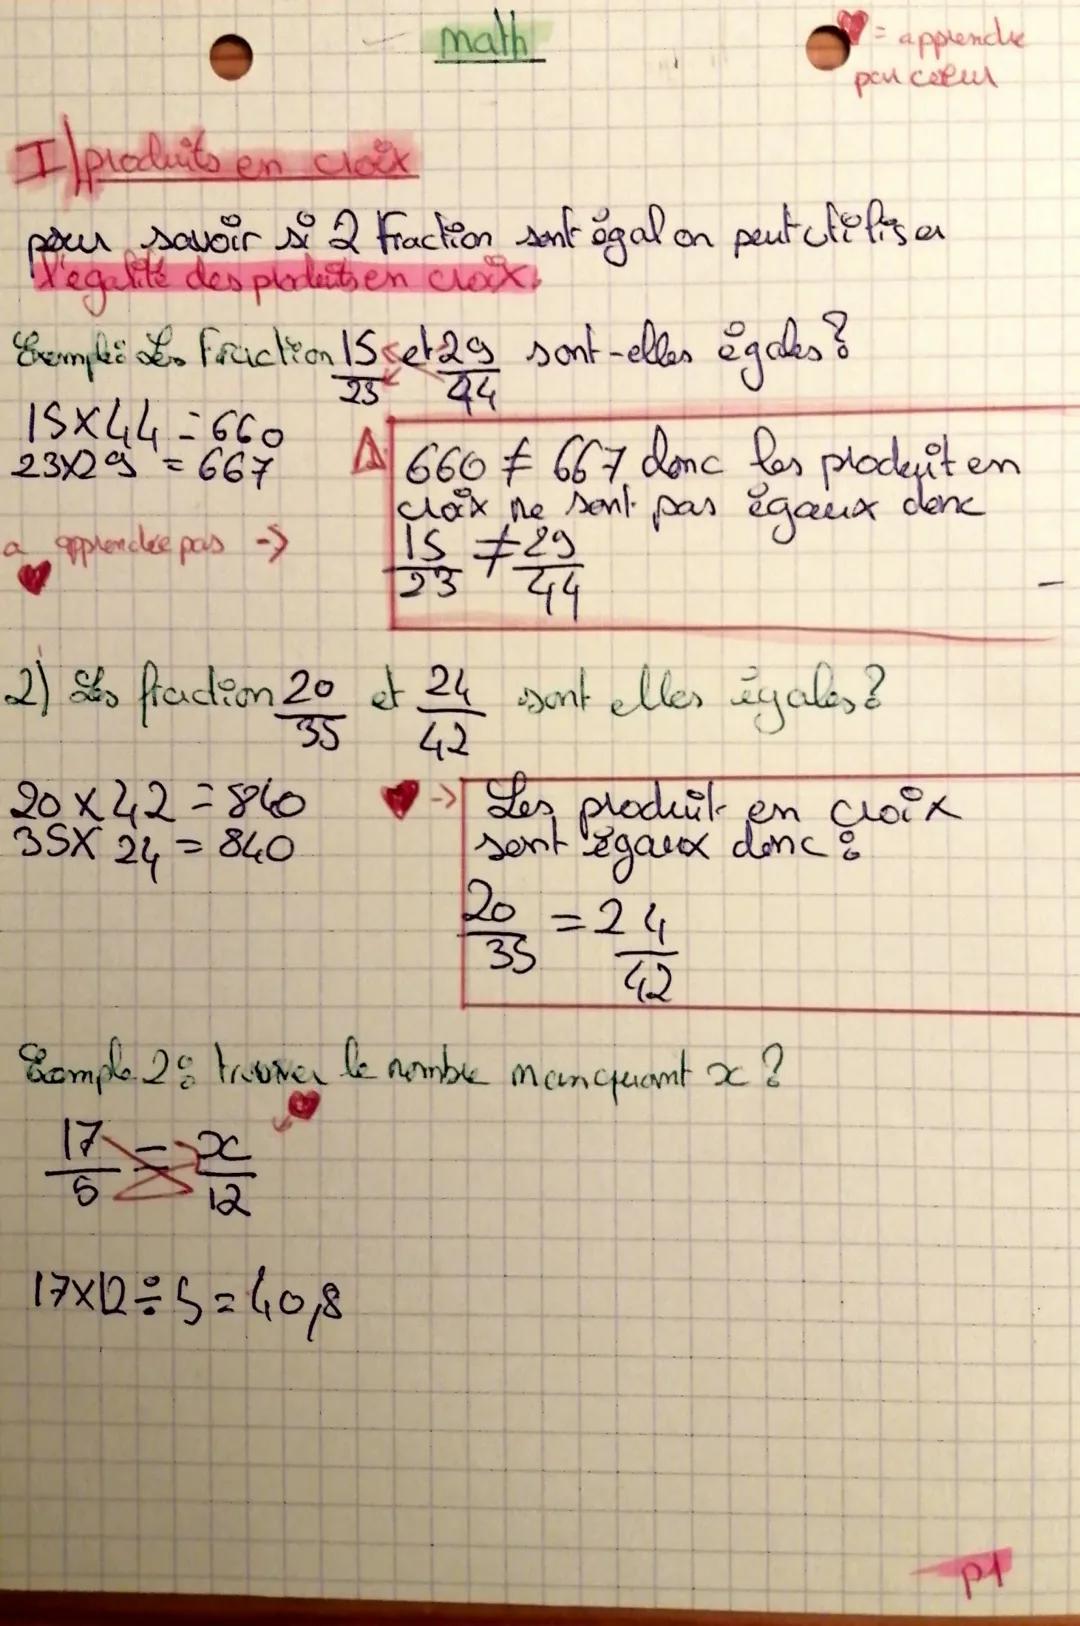 math
♥ = apprendre
par cœur
I) produits en croix
pour savoir si 2 fraction sont égal on peut utiliser
l'égalité des produits en croix.
Exemple: Les fraction 15/23 et 29/44 sont-elles égales?
15×44 = 660
23×29 = 667
660 ≠ 667 donc les produit en
croix ne sont pas égaux donc
15/23 ≠ 29/44
a apprendre pas ->
♥
2) Les fraction 20/35 et 24/42 sont elles égales?
20×42 = 840
35×24 = 840
♥ -> Les produit en croix
sont égaux donc:
20/35 = 24/42
Exemple 2: trouver le nombre manquant x?
17/5 = x/12
17×12÷5=40,8
p1